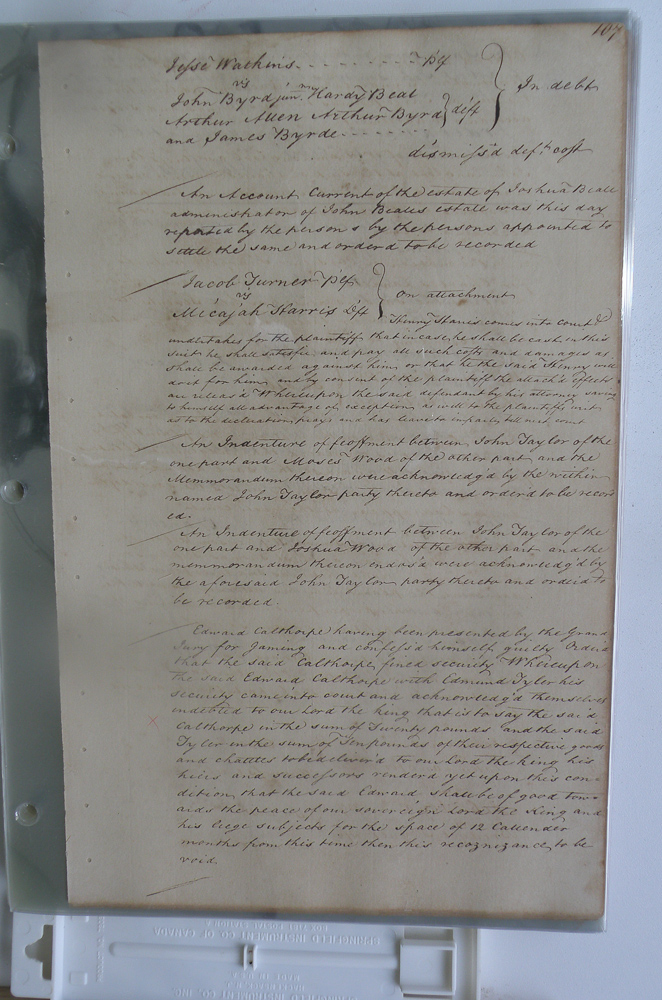 107
Jesse Watkins - - - - - - - Plf
vs
John Byrd junr. Hardy Beal
Arthur Allen Arthur Byrd } difs } In debt
and James Byrde - - - - -
dismiss'd defts. cost
An Account Current of the estate of Joshua Beale
administrator of John Beales estate was this day
reported by the persons by the persons appointed to
settle the same and orderd to be recorded
Jacob Turner Plf
vs
Micajah Harris Dft } On attachment
Henry Harris comes into Court &
undertakes for the plaintiff that in case he shall be cash in this
suit he shall satisfie and pay all such costs and damages as
shall be awarded against him or that he the said Henry will
do it for him and by consent of the plaintiff the attach'd effects
are releas'd Whereupon the said defendant by his attorney saving
to himself all advantage of exceptions as well to the plaintiffs writ
as to the declaration prays and has leave to imparle till next court
An Indenture of feoffment between John Taylor of the
one part and Moses Wood of the other part and the
Memmorandum thereon were acknowledg'd by the within
named John Taylor party thereto and order'd to be record
ed.
An Indenture of feoffment between John Taylor of the
one part and Joshua Wood of the other part and the
memmorandum thereon endors'd were acknowledg'd by
the aforesaid John Taylor party thereto and order'd to
be recorded.
Edward Calthorpe having been presented by the Grand
Jury for Gaming and confess'd himself guilty Order'd
that the said Calthorpe find security Whereupon
the said Edward Calthorpe with Edmund Tyler his
security came into court and acknowledg'd themselves
indebted to our Lord the King that is to say the said
Calthorpe in the sum of Twenty pounds and the said
Tyler in the sum of Ten pounds of their respective goods
and chattles to be deliver'd to our Lord the King his
heirs and successors render'd yet upon this con=
dition that the said Edward shall be of good tow=
ards the peace of our sovereign Lord the King and
his liege subjects for the space of 12 Callender
months from this time then this recognizance to be
void.
SPRINGFIELD INSTRUMENT CO. OF CANADA